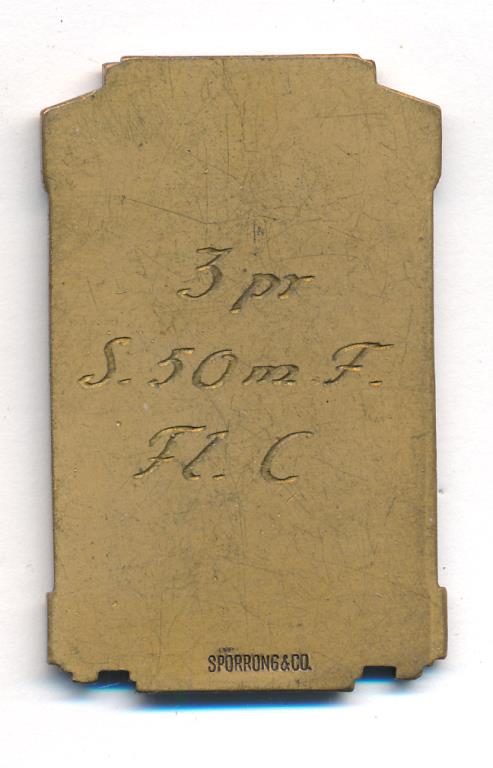 3 pr
S. 50 m. F.
Fl. C
SPORRONG & CO.